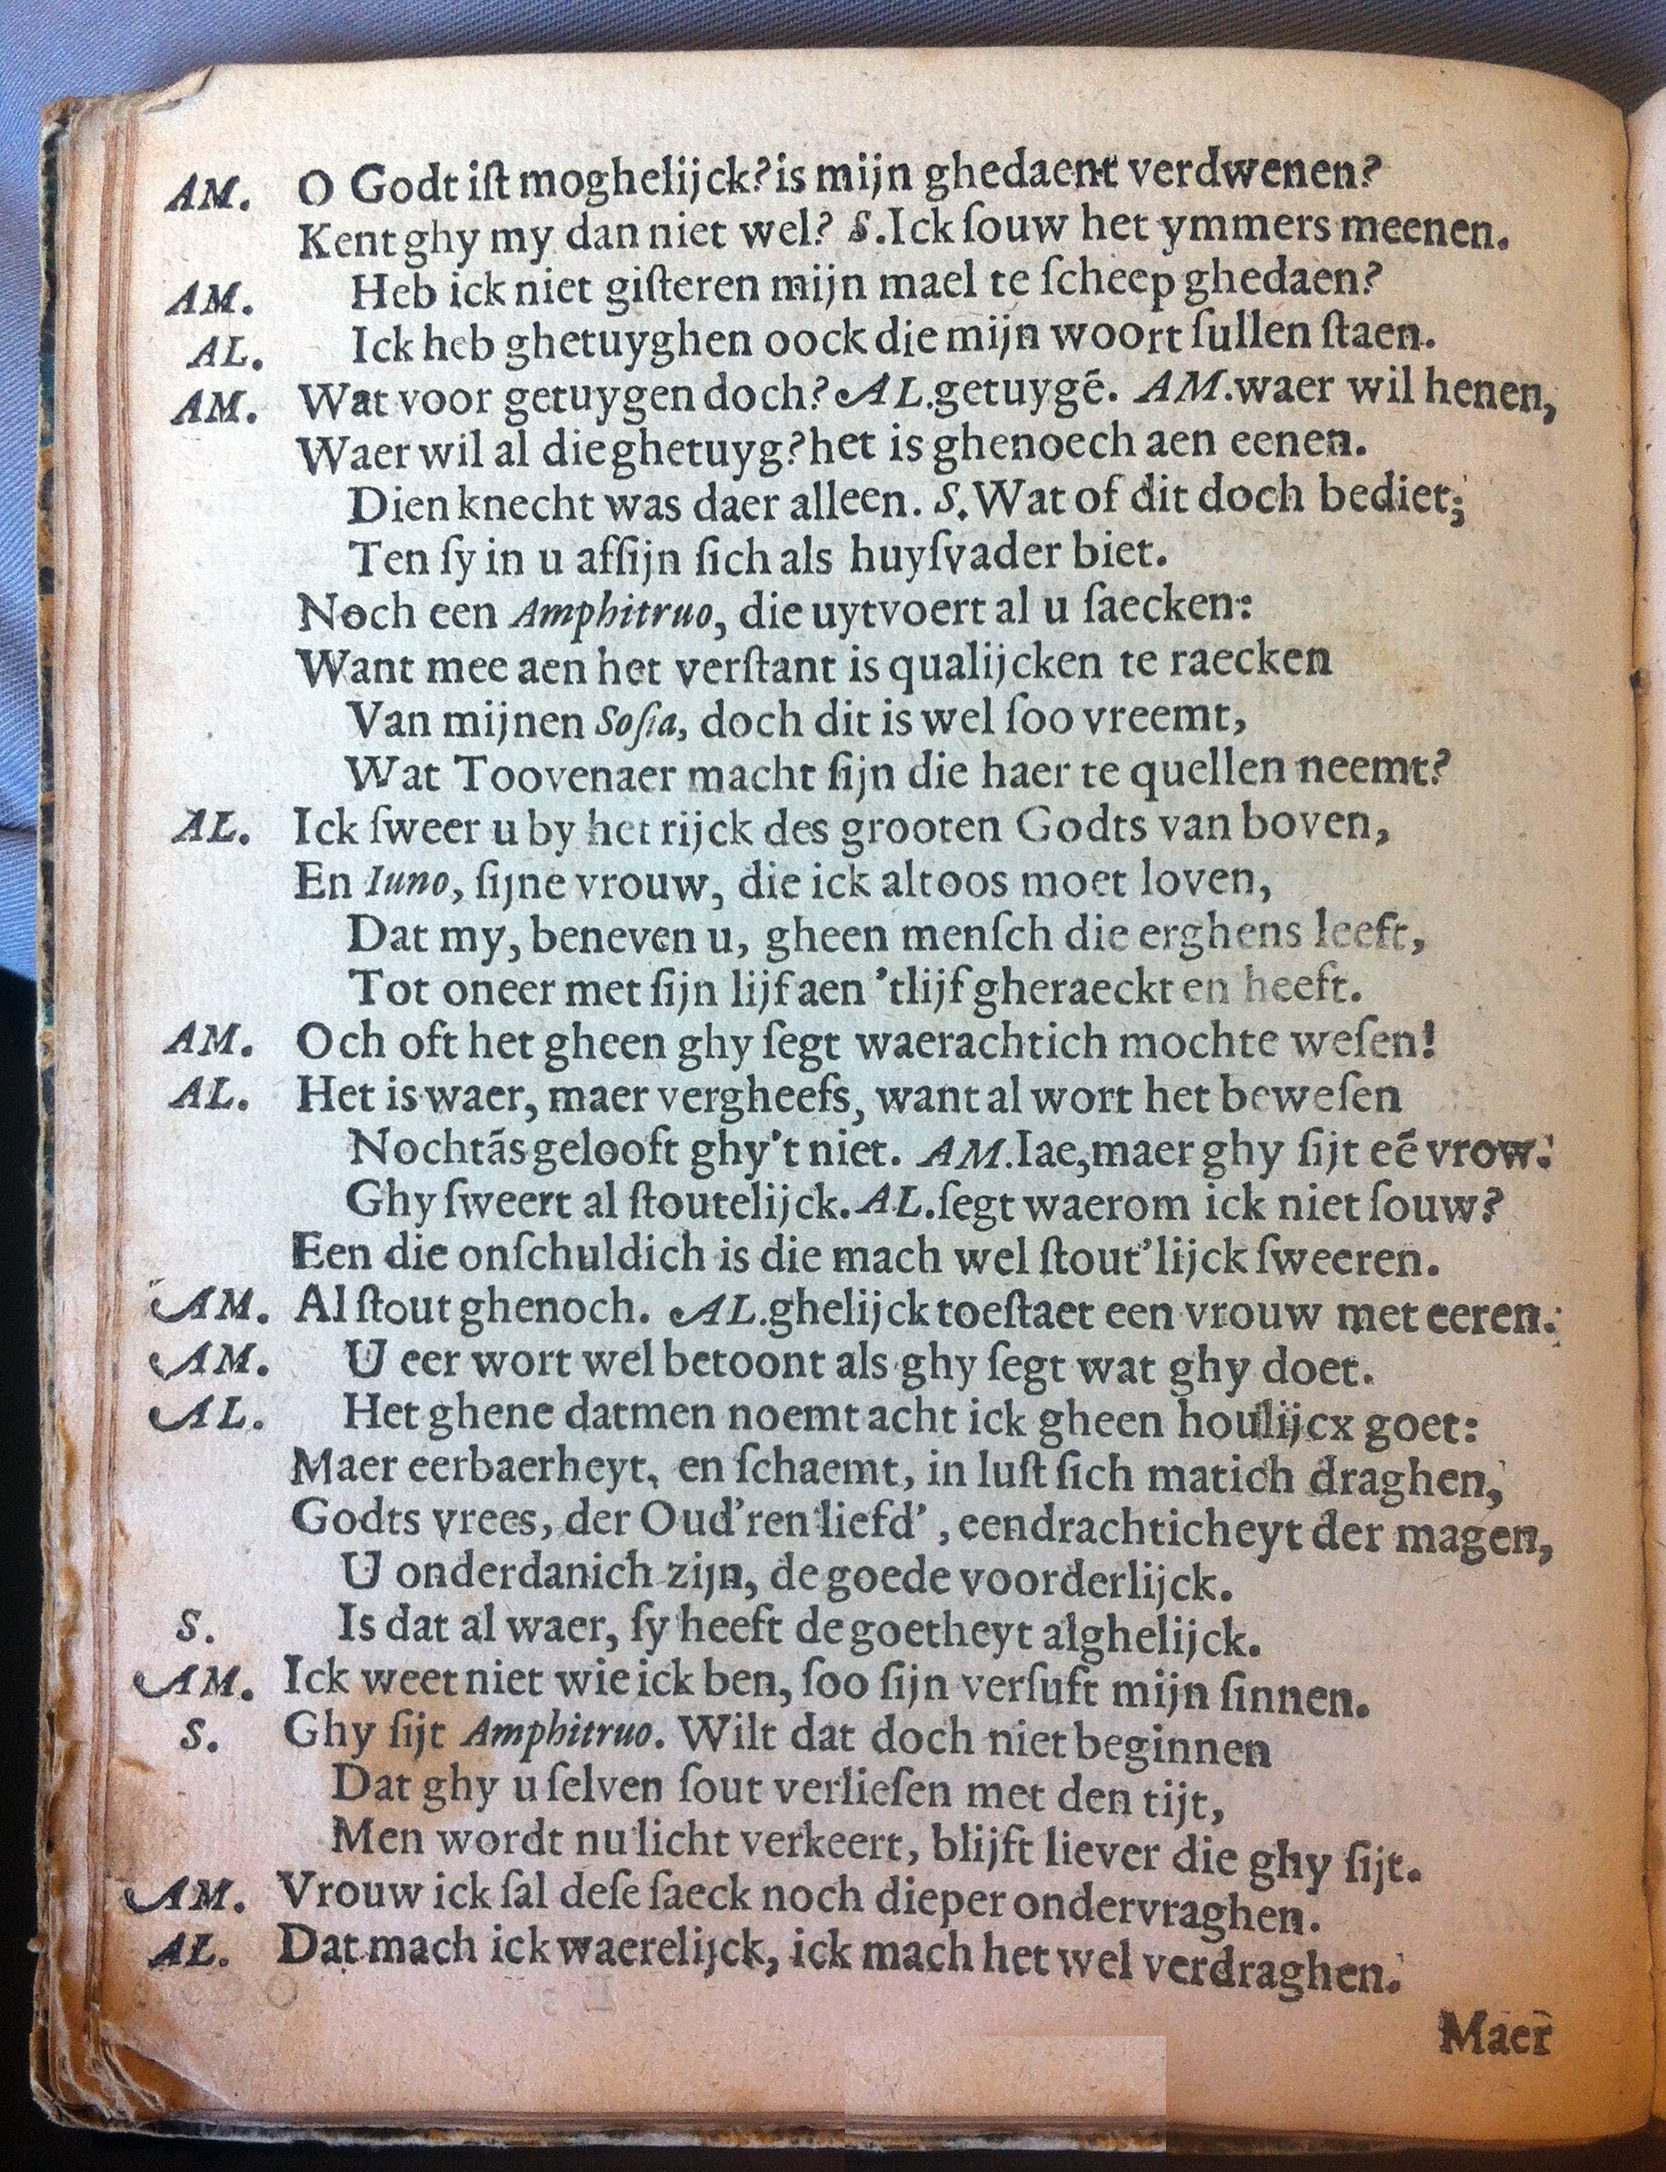 AM. O Godt iſt moghelijck? is mijn ghedaent verdwenen?
Kent ghy my dan niet wel? S. Ick ſouw het ymmers meenen.
AM. Heb ick niet giſteren mijn mael te ſcheep ghedaen?
AL. Ick heb ghetuyghen oock die mijn woort ſullen ſtaen.
AM. Wat voor getuygen doch? AL. getuygē. AM. waer wil henen,
Waer wil al die ghetuyg? het is ghenoech aen eenen.
Dien knecht was daer alleen. S. Wat of dit doch bediet;
Ten ſy in u afſijn ſich als huyſvader biet.
Noch een Amphitruo, die uytvoert al u ſaecken:
Want mee aen het verſtant is qualijcken te raecken
Van mijnen Soſia, doch dit is wel ſoo vreemt,
Wat Toovenaer macht ſijn die haer te quellen neemt?
AL. Ick ſweer u by het rijck des grooten Godts van boven,
En Iuno, ſijne vrouw, die ick altoos moet loven,
Dat my, beneven u, gheen menſch die erghens leeft,
Tot oneer met ſijn lijf aen 'tlijf gheraeckt en heeft.
AM. Och oft het gheen ghy ſegt waerachtich mochte weſen!
AL. Het is waer, maer vergheefs, want al wort het beweſen
Nochtãs gelooft ghy't niet. AM. Iae, maer ghy ſijt eē vrow.
Ghy ſweert al ſtoutelijck. AL. ſegt waerom ick niet ſouw?
Een die onſchuldich is die mach wel ſtout'lijck ſweeren.
AM. Al ſtout ghenoch. AL. ghelijck toeſtaet een vrouw met eeren.
AM. U eer wort wel betoont als ghy ſegt wat ghy doet.
AL. Het ghene datmen noemt acht ick gheen houlijcx goet:
Maer eerbaerheyt, en ſchaemt, in luſt ſich matich draghen,
Godts vrees, der Oud'ren liefd', eendrachticheyt der magen,
U onderdanich zijn, de goede voorderlijck.
S. Is dat al waer, ſy heeft de goetheyt alghelijck.
AM. Ick weet niet wie ick ben, ſoo ſijn verſuft mijn ſinnen.
S. Ghy ſijt Amphitruo. Wilt dat doch niet beginnen
Dat ghy u ſelven ſout verlieſen met den tijt,
Men wordt nu licht verkeert, blijft liever die ghy ſijt.
AM. Vrouw ick ſal deſe ſaeck noch dieper ondervraghen.
AL. Dat mach ick waerelijck, ick mach het wel verdraghen.
Maer